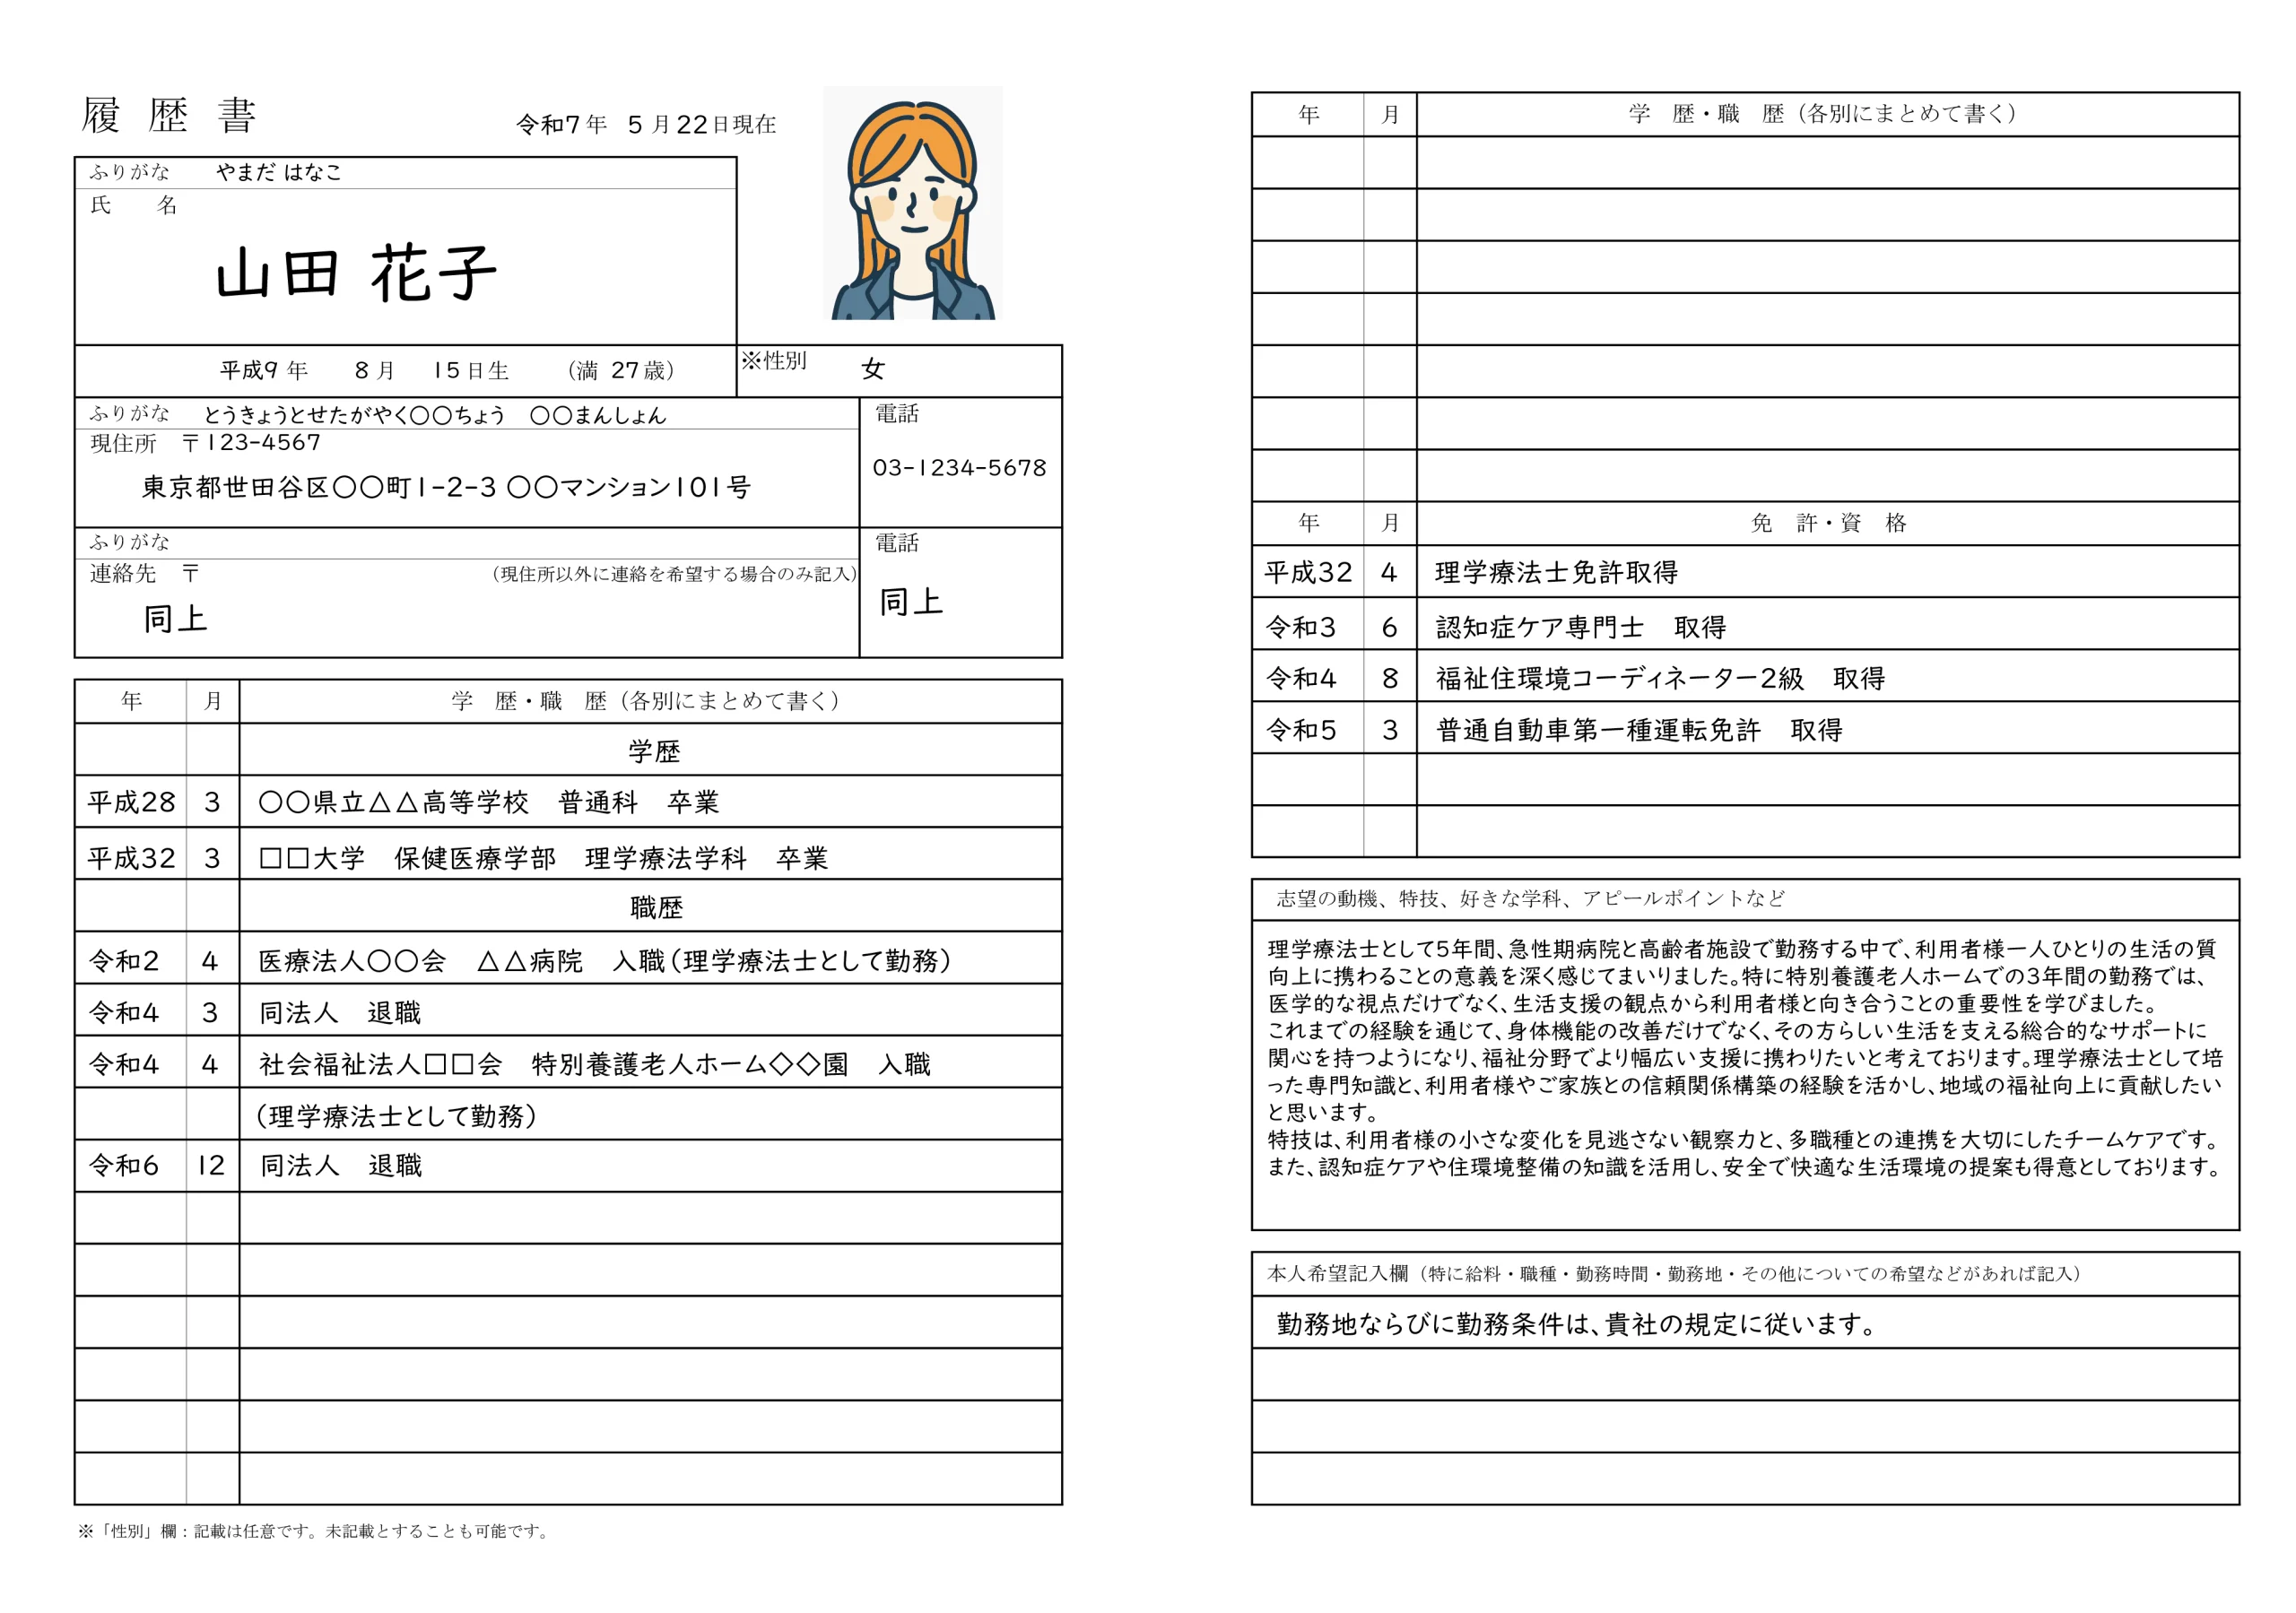 履 歴 書
令和7 年 5 月 22 日現在
ふりがな やまだ はなこ
氏 名
山田 花子
平成9 年 8 月 15 日生 (満 27 歳)
※性別 女
ふりがな とうきょうとせたがやく〇〇ちょう 〇〇まんしょん
現住所 〒123-4567
東京都世田谷区〇〇町1-2-3 〇〇マンション101号
電話
03-1234-5678
ふりがな
連絡先 〒 (現住所以外に連絡を希望する場合のみ記入)
同上
電話
同上
年 月 学 歴・職 歴(各別にまとめて書く)
学歴
平成28 3 〇〇県立△△高等学校 普通科 卒業
平成32 3 □□大学 保健医療学部 理学療法学科 卒業
職歴
令和2 4 医療法人〇〇会 △△病院 入職(理学療法士として勤務)
令和4 3 同法人 退職
令和4 4 社会福祉法人□□会 特別養護老人ホーム◇◇園 入職
(理学療法士として勤務)
令和6 12 同法人 退職
※「性別」欄:記載は任意です。未記載とすることも可能です。
年 月 学 歴・職 歴(各別にまとめて書く)
年 月 免 許・資 格
平成32 4 理学療法士免許取得
令和3 6 認知症ケア専門士 取得
令和4 8 福祉住環境コーディネーター2級 取得
令和5 3 普通自動車第一種運転免許 取得
志望の動機、特技、好きな学科、アピールポイントなど
理学療法士として5年間、急性期病院と高齢者施設で勤務する中で、利用者様一人ひとりの生活の質
向上に携わることの意義を深く感じてまいりました。特に特別養護老人ホームでの3年間の勤務では、
医学的な視点だけでなく、生活支援の観点から利用者様と向き合うことの重要性を学びました。
これまでの経験を通じて、身体機能の改善だけでなく、その方らしい生活を支える総合的なサポートに
関心を持つようになり、福祉分野でより幅広い支援に携わりたいと考えております。理学療法士として培
った専門知識と、利用者様やご家族との信頼関係構築の経験を活かし、地域の福祉向上に貢献したい
と思います。
特技は、利用者様の小さな変化を見逃さない観察力と、多職種との連携を大切にしたチームケアです。
また、認知症ケアや住環境整備の知識を活用し、安全で快適な生活環境の提案も得意としております。
本人希望記入欄(特に給料・職種・勤務時間・勤務地・その他についての希望などがあれば記入)
勤務地ならびに勤務条件は、貴社の規定に従います。